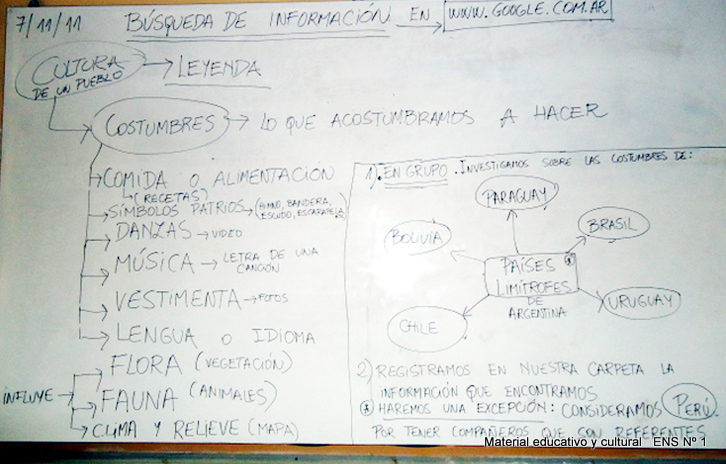 7/11/11 BÚSQUEDA DE INFORMACIÓN EN → WWW.GOOGLE.COM.AR
CULTURA → LEYENDA
DE UN PUEBLO
COSTUMBRES → LO QUE ACOSTUMBRAMOS A HACER
COMIDA O ALIMENTACIÓN
(RECETAS)
SÍMBOLOS PATRIOS → (HIMNO, BANDERA,
ESCUDO, ESCARAPELA)
DANZAS → VIDEO
MÚSICA → LETRA DE UNA
CANCIÓN
VESTIMENTA → FOTOS
LENGUA O IDIOMA
INFLUYE →
FLORA (VEGETACIÓN)
FAUNA (ANIMALES)
CLIMA Y RELIEVE (MAPA)
1) EN GRUPO. INVESTIGAMOS SOBRE LAS COSTUMBRES DE:
PARAGUAY
BOLIVIA
BRASIL
PAÍSES
LIMÍTROFES
DE
ARGENTINA
URUGUAY
CHILE
2) REGISTRAMOS EN NUESTRA CARPETA LA
INFORMACIÓN QUE ENCONTRAMOS
* HAREMOS UNA EXCEPCIÓN: CONSIDERAMOS PERÚ.
POR TENER COMPAÑEROS QUE SON REFERENTES
Material educativo y cultural ENS Nº 1